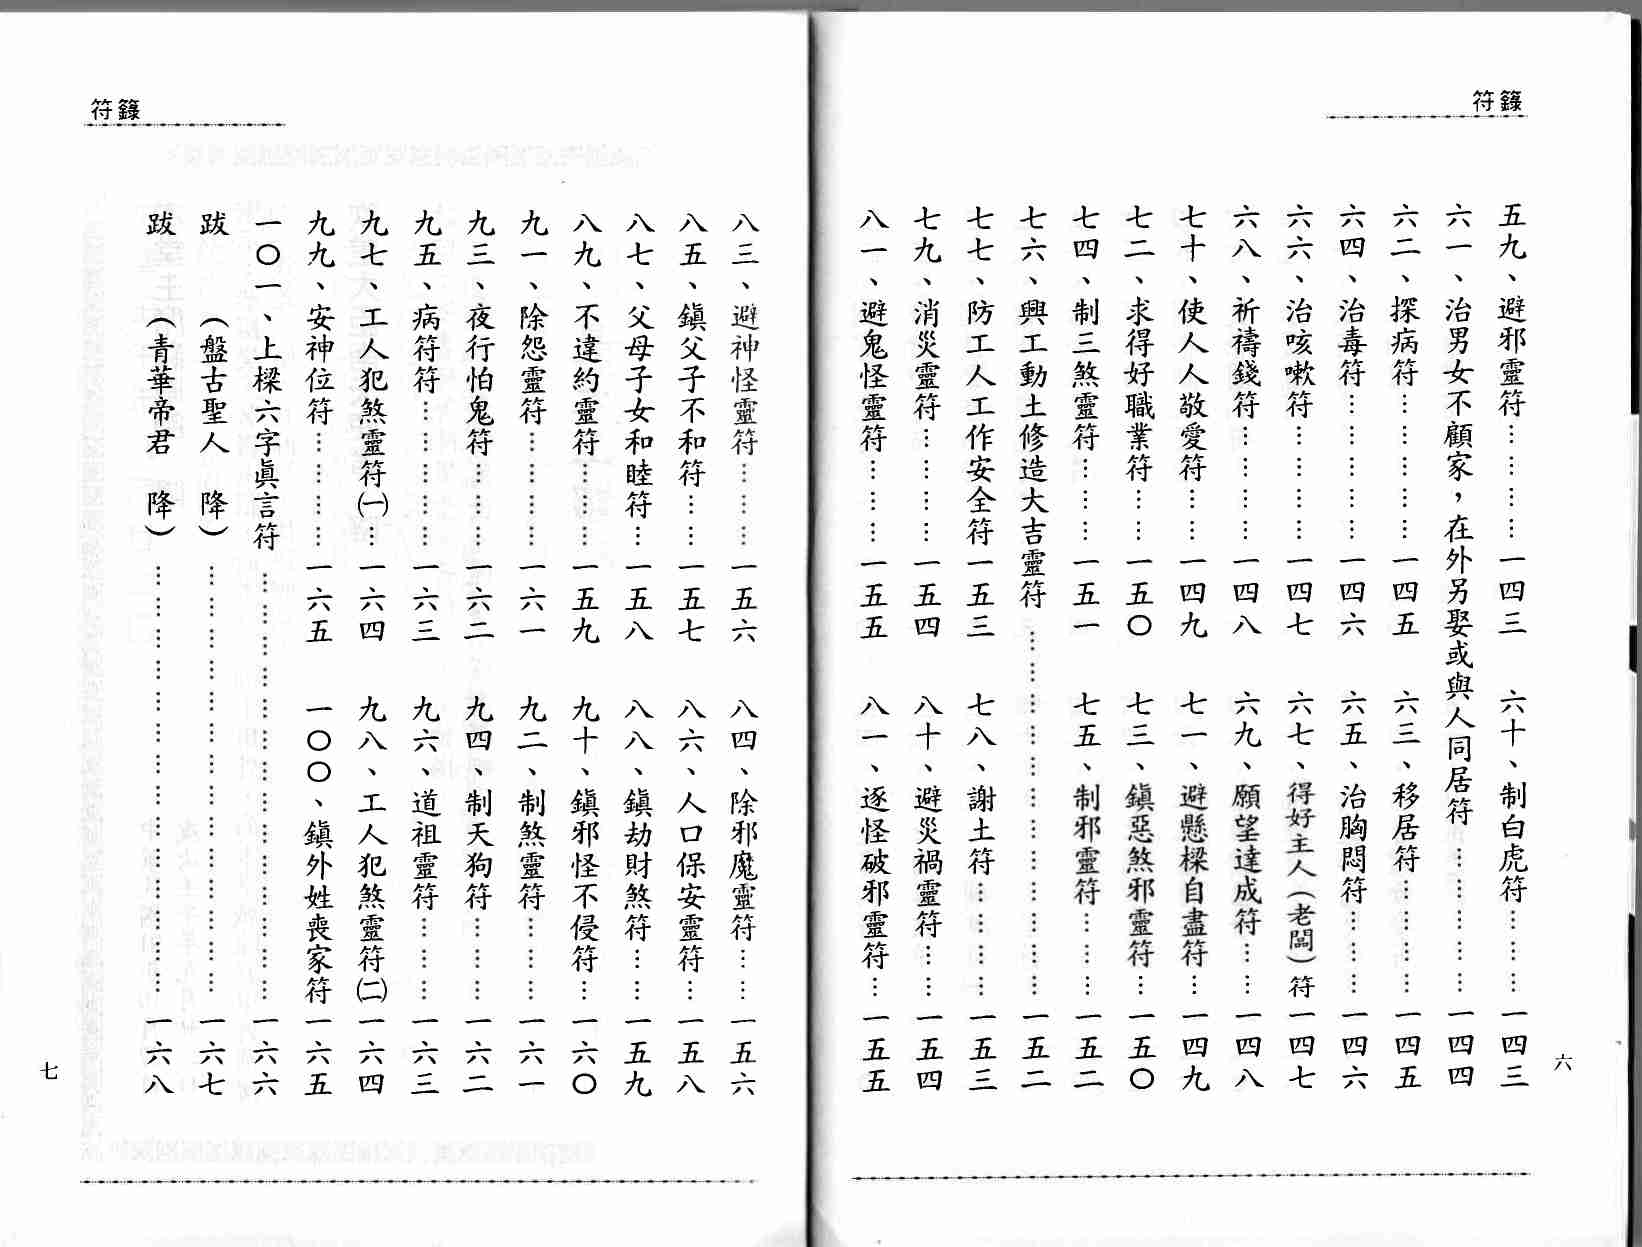 符籙
五九、避邪靈符…………一四三
六十、制白虎符…………一四三
六一、治男女不顧家，在外另娶或與人同居符……………一四四
六二、探病符……………一四五
六三、移居符……………一四五
六四、治毒符……………一四六
六五、治胸悶符…………一四六
六六、治咳嗽符…………一四七
六七、得好主人（老闆）符一四七
六八、祈禱錢符…………一四八
六九、願望達成符………一四八
七十、使人人敬愛符……一四九
七一、避懸樑自盡符……一四九
七二、求得好職業符……一五〇
七三、鎮惡煞邪靈符……一五〇
七四、制三煞靈符………一五一
七五、制邪靈符…………一五二
七六、興工動土修造大吉靈符……………一五二
七七、防工人工作安全符一五三
七八、謝土符……………一五三
七九、消災靈符…………一五四
八十、避災禍靈符………一五四
八一、避鬼怪靈符………一五五
八一、逐怪破邪靈符……一五五
六
符籙
八三、避神怪靈符………一五六
八四、除邪魔靈符………一五六
八五、鎮父子不和符……一五七
八六、人口保安靈符……一五八
八七、父母子女和睦符…一五八
八八、鎮劫財煞符………一五九
八九、不違約靈符………一五九
九十、鎮邪怪不侵符……一六〇
九一、除怨靈符…………一六一
九二、制煞靈符…………一六一
九三、夜行怕鬼符………一六二
九四、制天狗符…………一六二
九五、病符符……………一六三
九六、道祖靈符…………一六三
九七、工人犯煞靈符㈠…一六四
九八、工人犯煞靈符㈡一六四
九九、安神位符…………一六五
一〇〇、鎮外姓喪家符一六五
一〇一、上樑六字眞言符……………一六六
跋　（盤古聖人　降）……………一六七
跋　（青華帝君　降）……………一六八
七